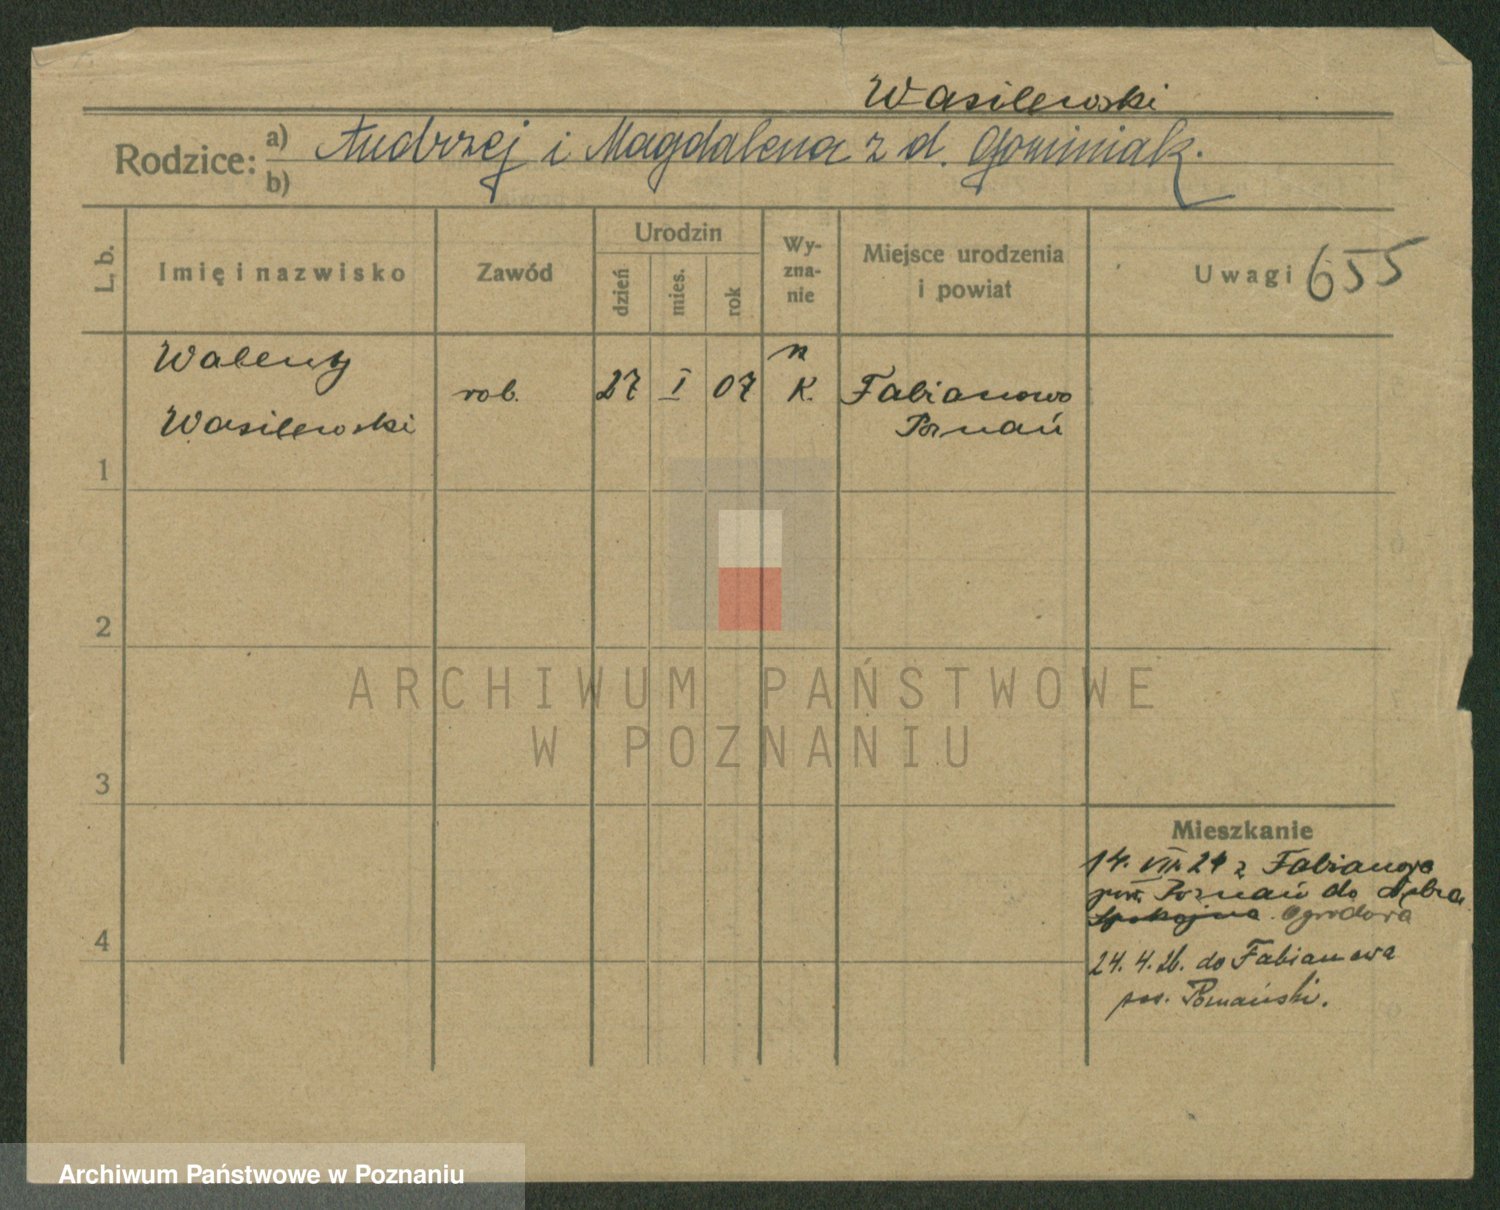 Wasilewski
Rodzice: a) Andrzej i Magdalena z d.
b)
L. b.
Imię i nazwisko
Zawód
Urodzin
dzień
mies.
rok
Wy-
zna-
nie
Miejsce urodzenia
i powiat
Uwagi 655
Walenty
Wasilewski
rob.
27 I 07
K.
Fabianowo
Poznań
1
2
3
4
ARCHIWUM PAŃSTWOWE
W POZNANIU
Mieszkanie
14. z Fabianowa
pow. Poznań do
Spokojna Ogrodowa
24. 4. 26. do Fabianowa
Poznański.
Archiwum Państwowe w Poznaniu